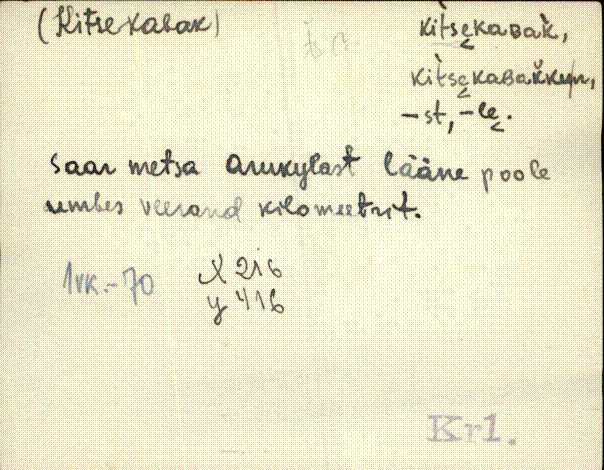 (Kitsekabak)
kìtsekaʙak̀,
kìtsekaʙak̆kun,
-st, -le.
Saar metsa Arukylast lääne poole
umbes veerand kilomeetrit.
1vk.-70
X 216
y 416
Kr1.